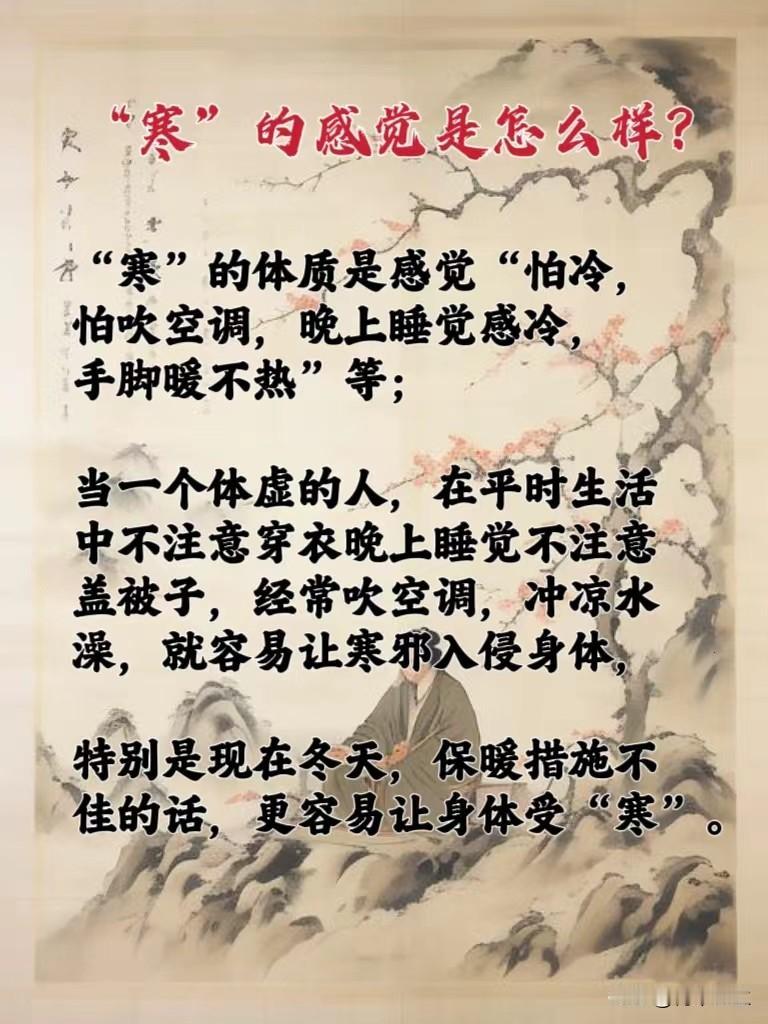 “寒”的感觉是怎么样？
“寒”的体质是感觉“怕冷，
怕吹空调，晚上睡觉感冷，
手脚暖不热”等；
当一个体虚的人，在平时生活
中不注意穿衣晚上睡觉不注意
盖被子，经常吹空调，冲凉水
澡，就容易让寒邪入侵身体，
特别是现在冬天，保暖措施不
佳的话，更容易让身体受“寒”。